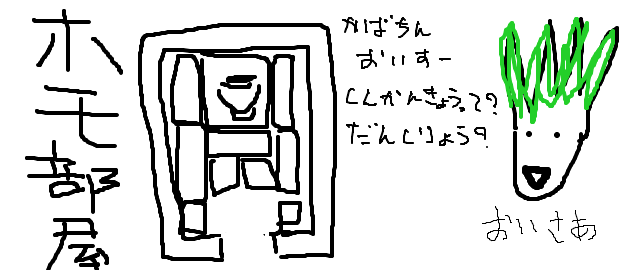 ホモ部屋
かばちん
おいすー
くんかんきょうって?
だんりょう?
おいさあ